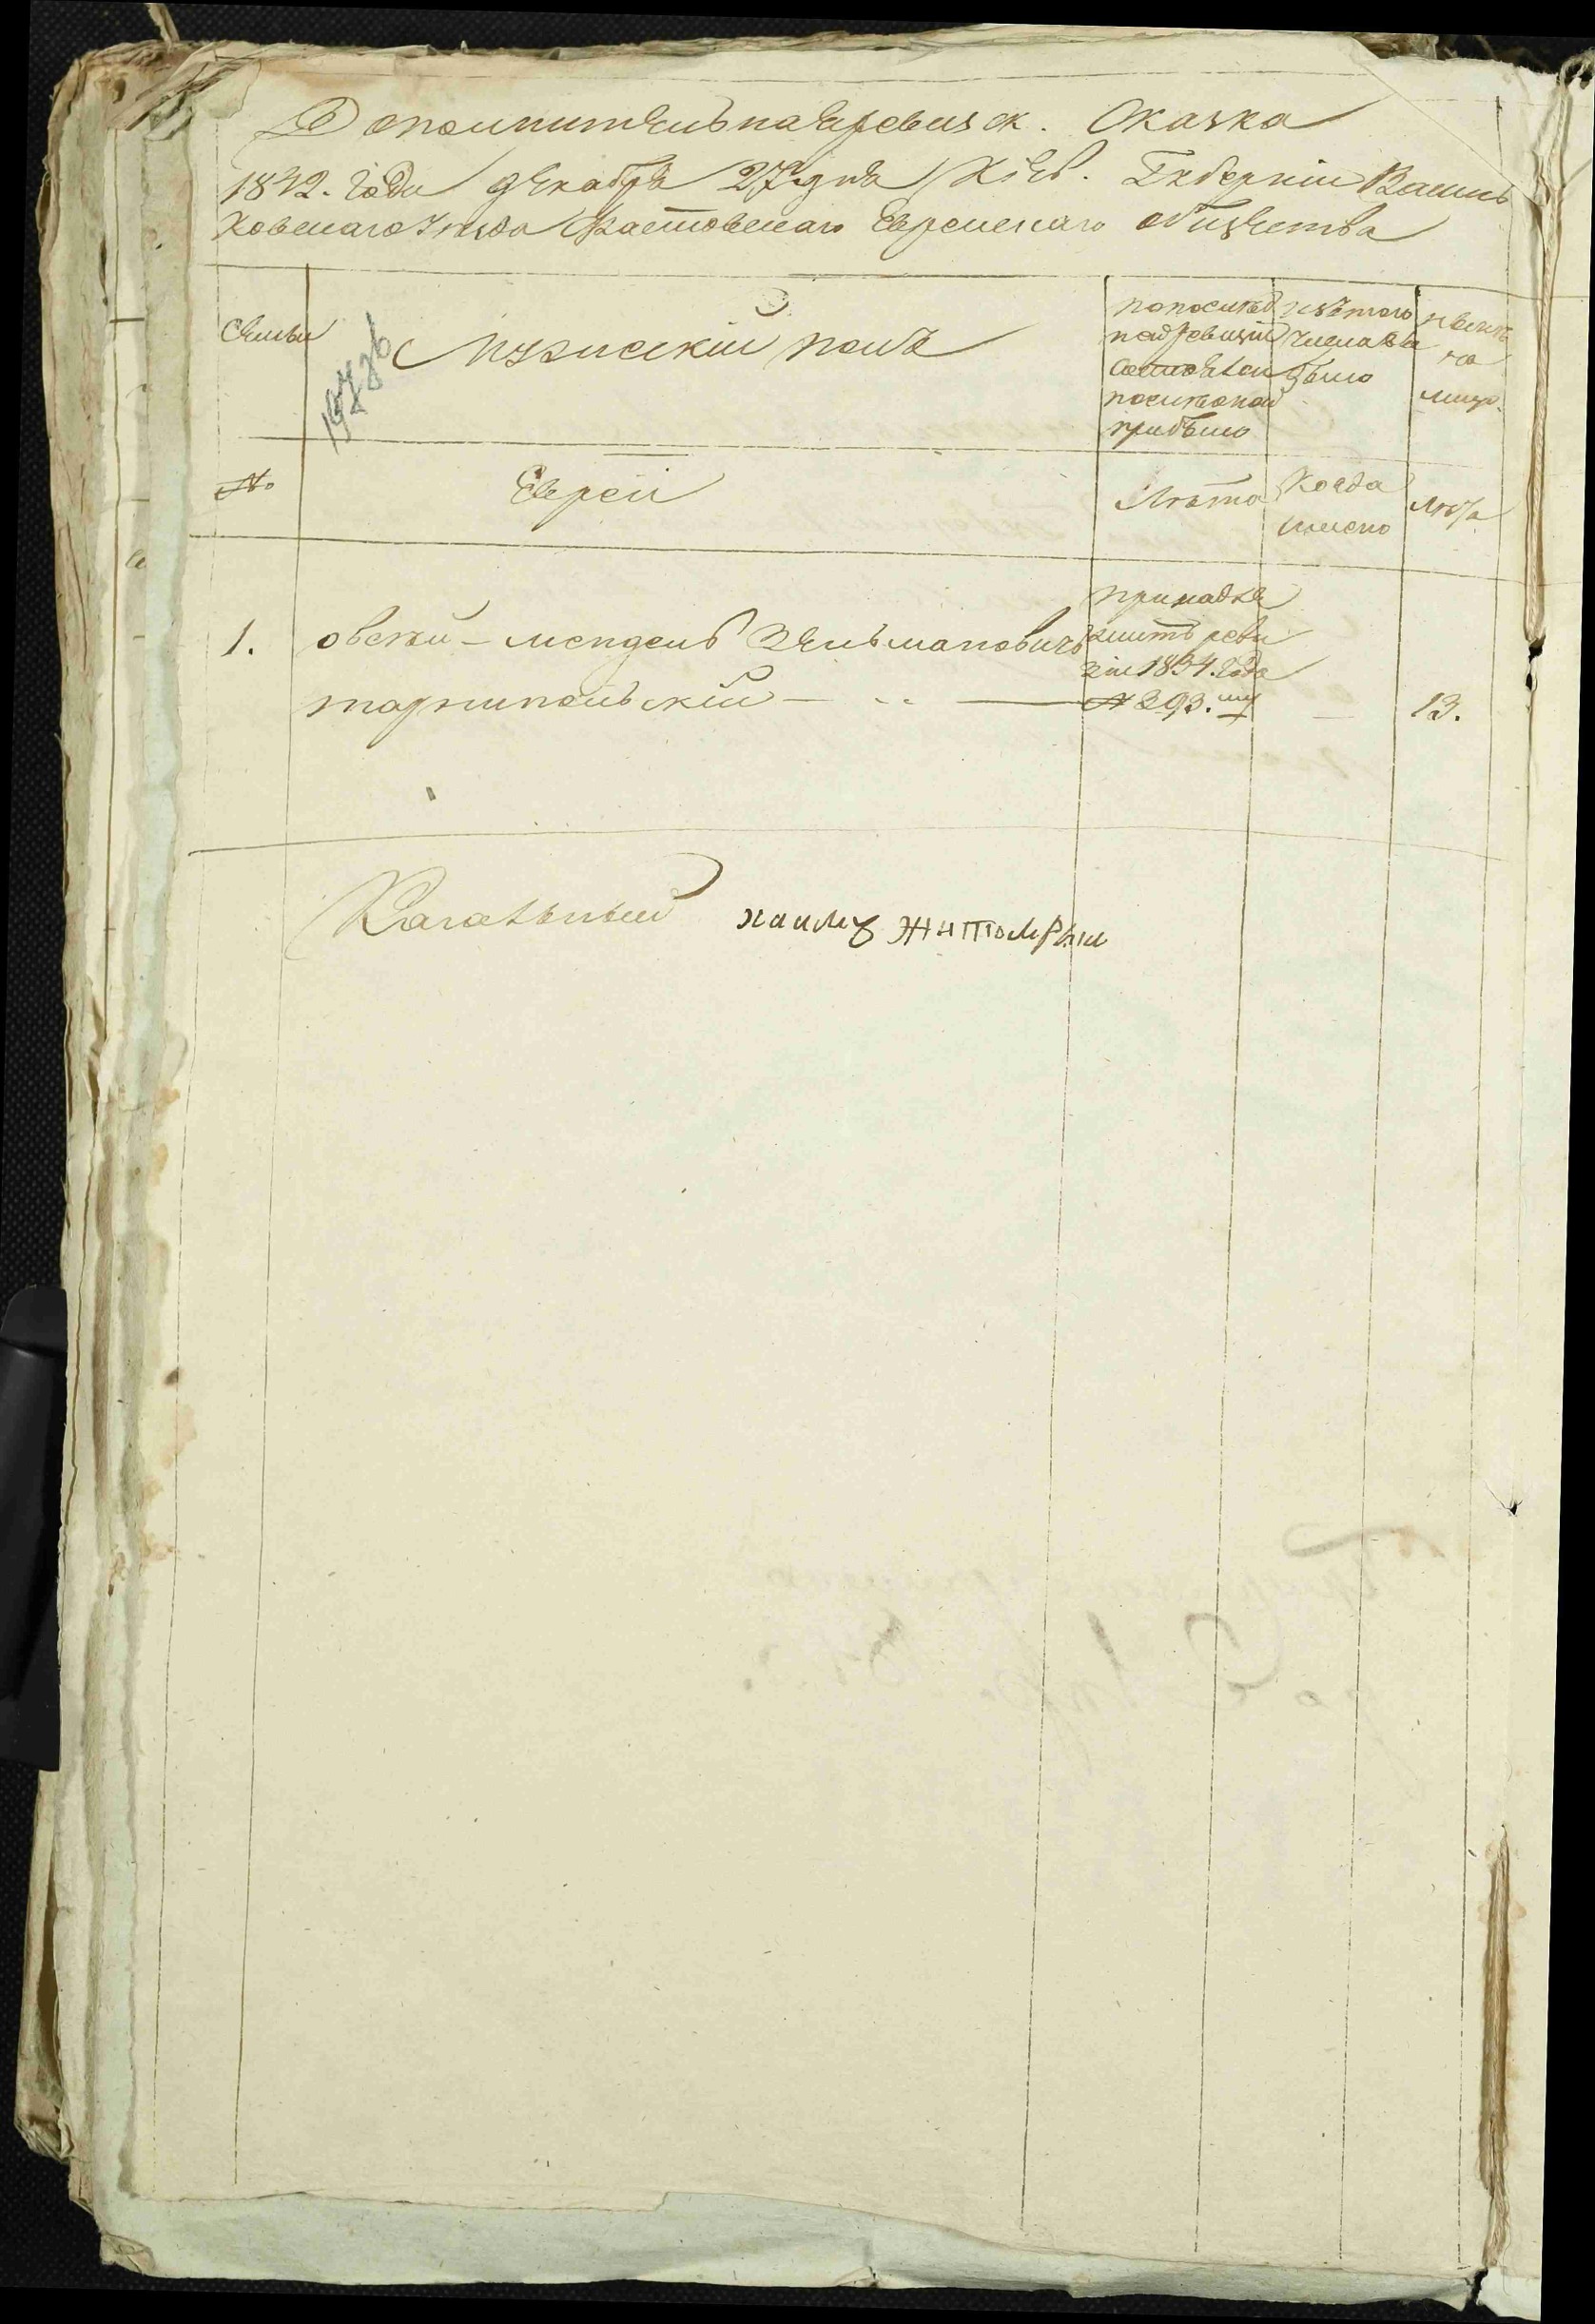 Дополнительная ревизск. Сказка
1842. года декабря 27. дня Кіев. Губерніи Василь
ковскаго уѣзда Фастовскаго Еврейскаго общества
Семьи
Мужескій полъ
по послѣд
ней ревизіи
состояло и
послѣ оной
прибыло
изъ того
числа вы
было
нынѣ
на
лицо.
№
Евреи
Лѣта
Когда
имено
Лѣта
1.
овсѣй - мендель Зельмановичъ
тарнипольскій
принадле
житъ реви
зіи 1834. года
№ 293.
—
13.
Кагальный